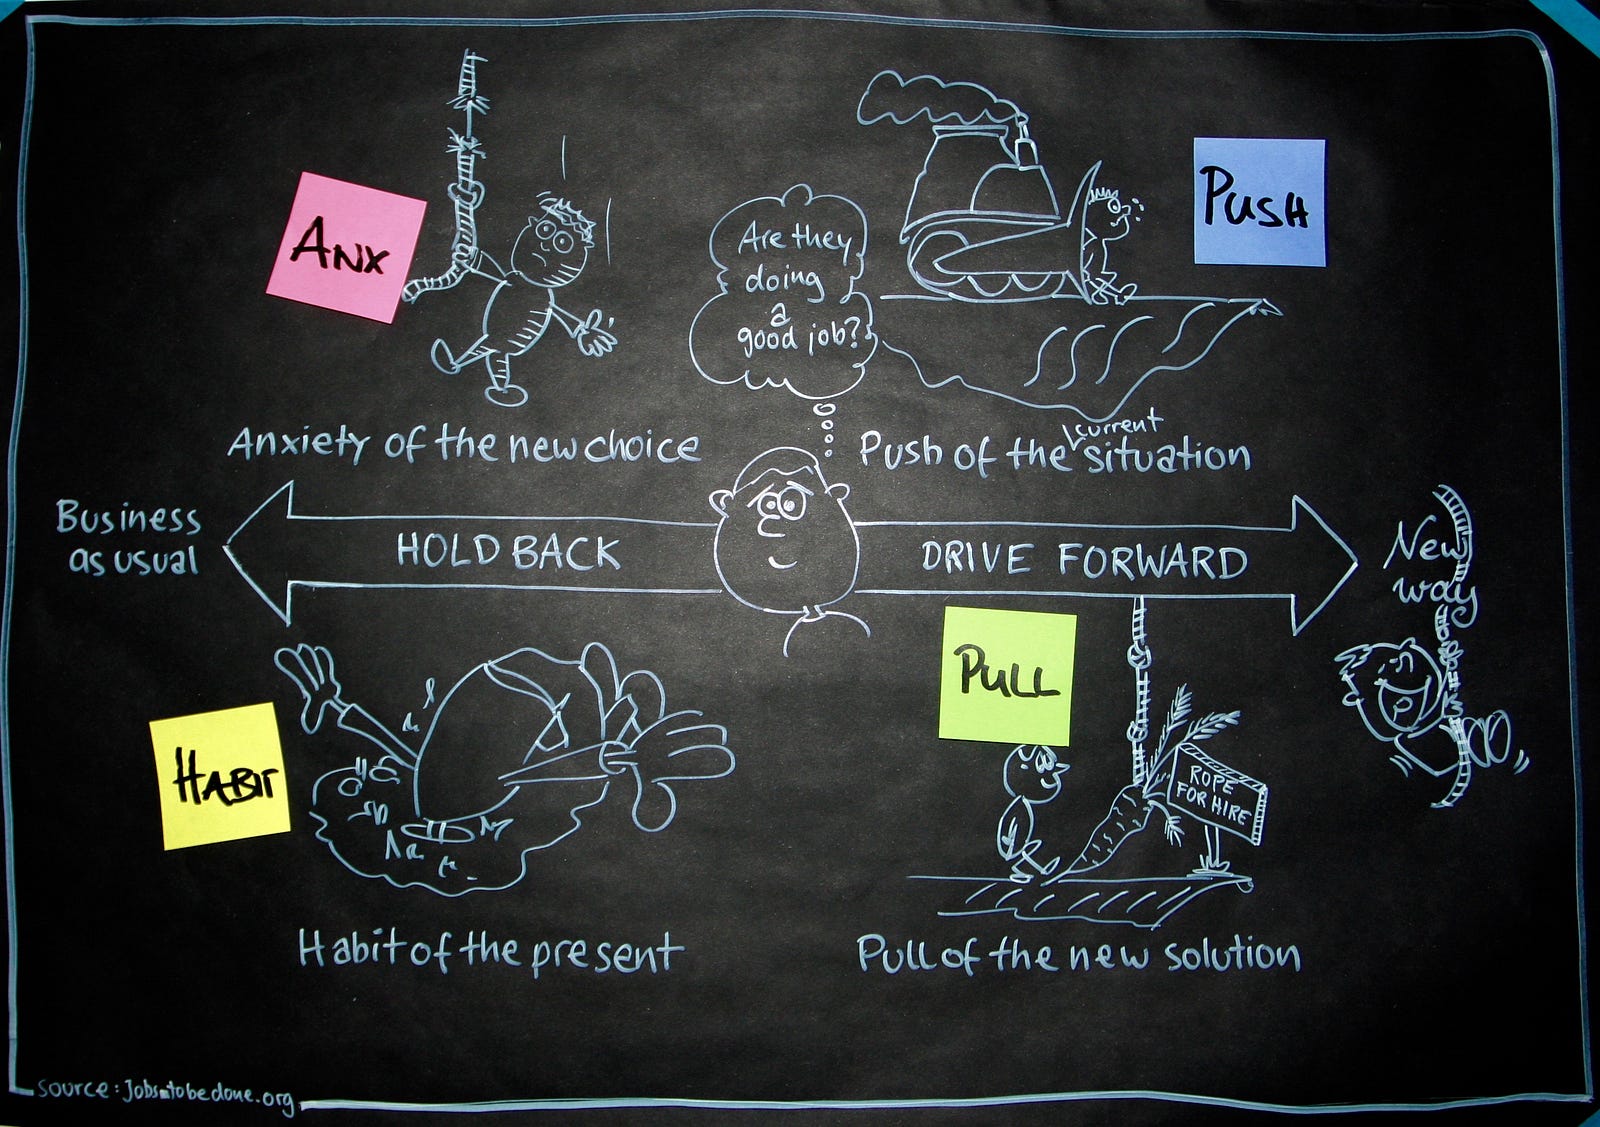 ANX
Are they
doing
a
good job?
PUSH
Anxiety of the new choice
Push of the current situation
Business
as usual
HOLD BACK
DRIVE FORWARD
New
way
HABIT
PULL
ROPE
FOR HIRE
Habit of the present
Pull of the new solution
source: jobstobedone.org